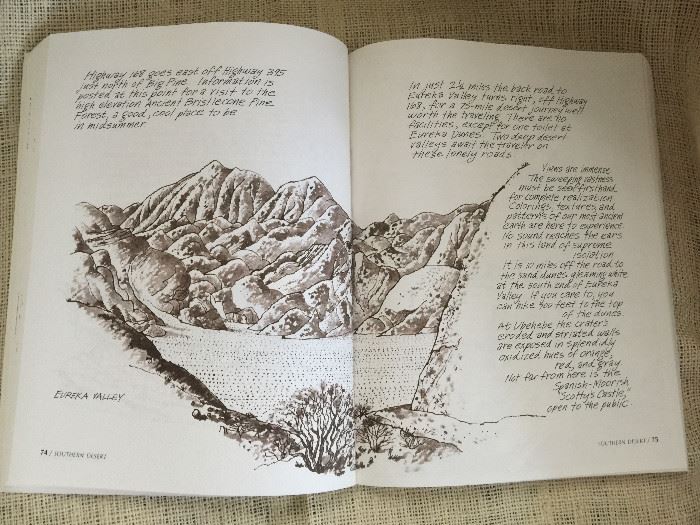 Highway 168 goes east off Highway 395
just north of Big Pine. Information is
posted at this point for a visit to the
high elevation Ancient Bristlecone Pine
Forest, a good, cool place to be
in midsummer
EUREKA VALLEY
74 / SOUTHERN DESERT
In just 2½ miles the back road to
Eureka Valley turns right, off Highway
168, for a 75-mile desert journey well
worth the traveling. There are no
facilities, except for one toilet at
Eureka Dunes. Two deep desert
valleys await the traveller on
these lonely roads.
Views are immense.
The sweeping vastness
must be seen firsthand
for complete realization.
Colorings, textures, and
patterns of our most ancient
earth are here to experience.
No sound reaches the ears
in this land of supreme
isolation
It is 10 miles off the road to
the sand dunes, gleaming white
at the south end of Eureka
Valley. If you care to, you
can hike 700 feet to the top
of the dunes.
At Ubehebe the crater's
eroded and striated walls
are exposed in splendidly
oxidized hues of orange,
red, and gray.
Not far from here is the
Spanish-Moorish
"Scotty's Castle,"
open to the public.
SOUTHERN DESERT / 75